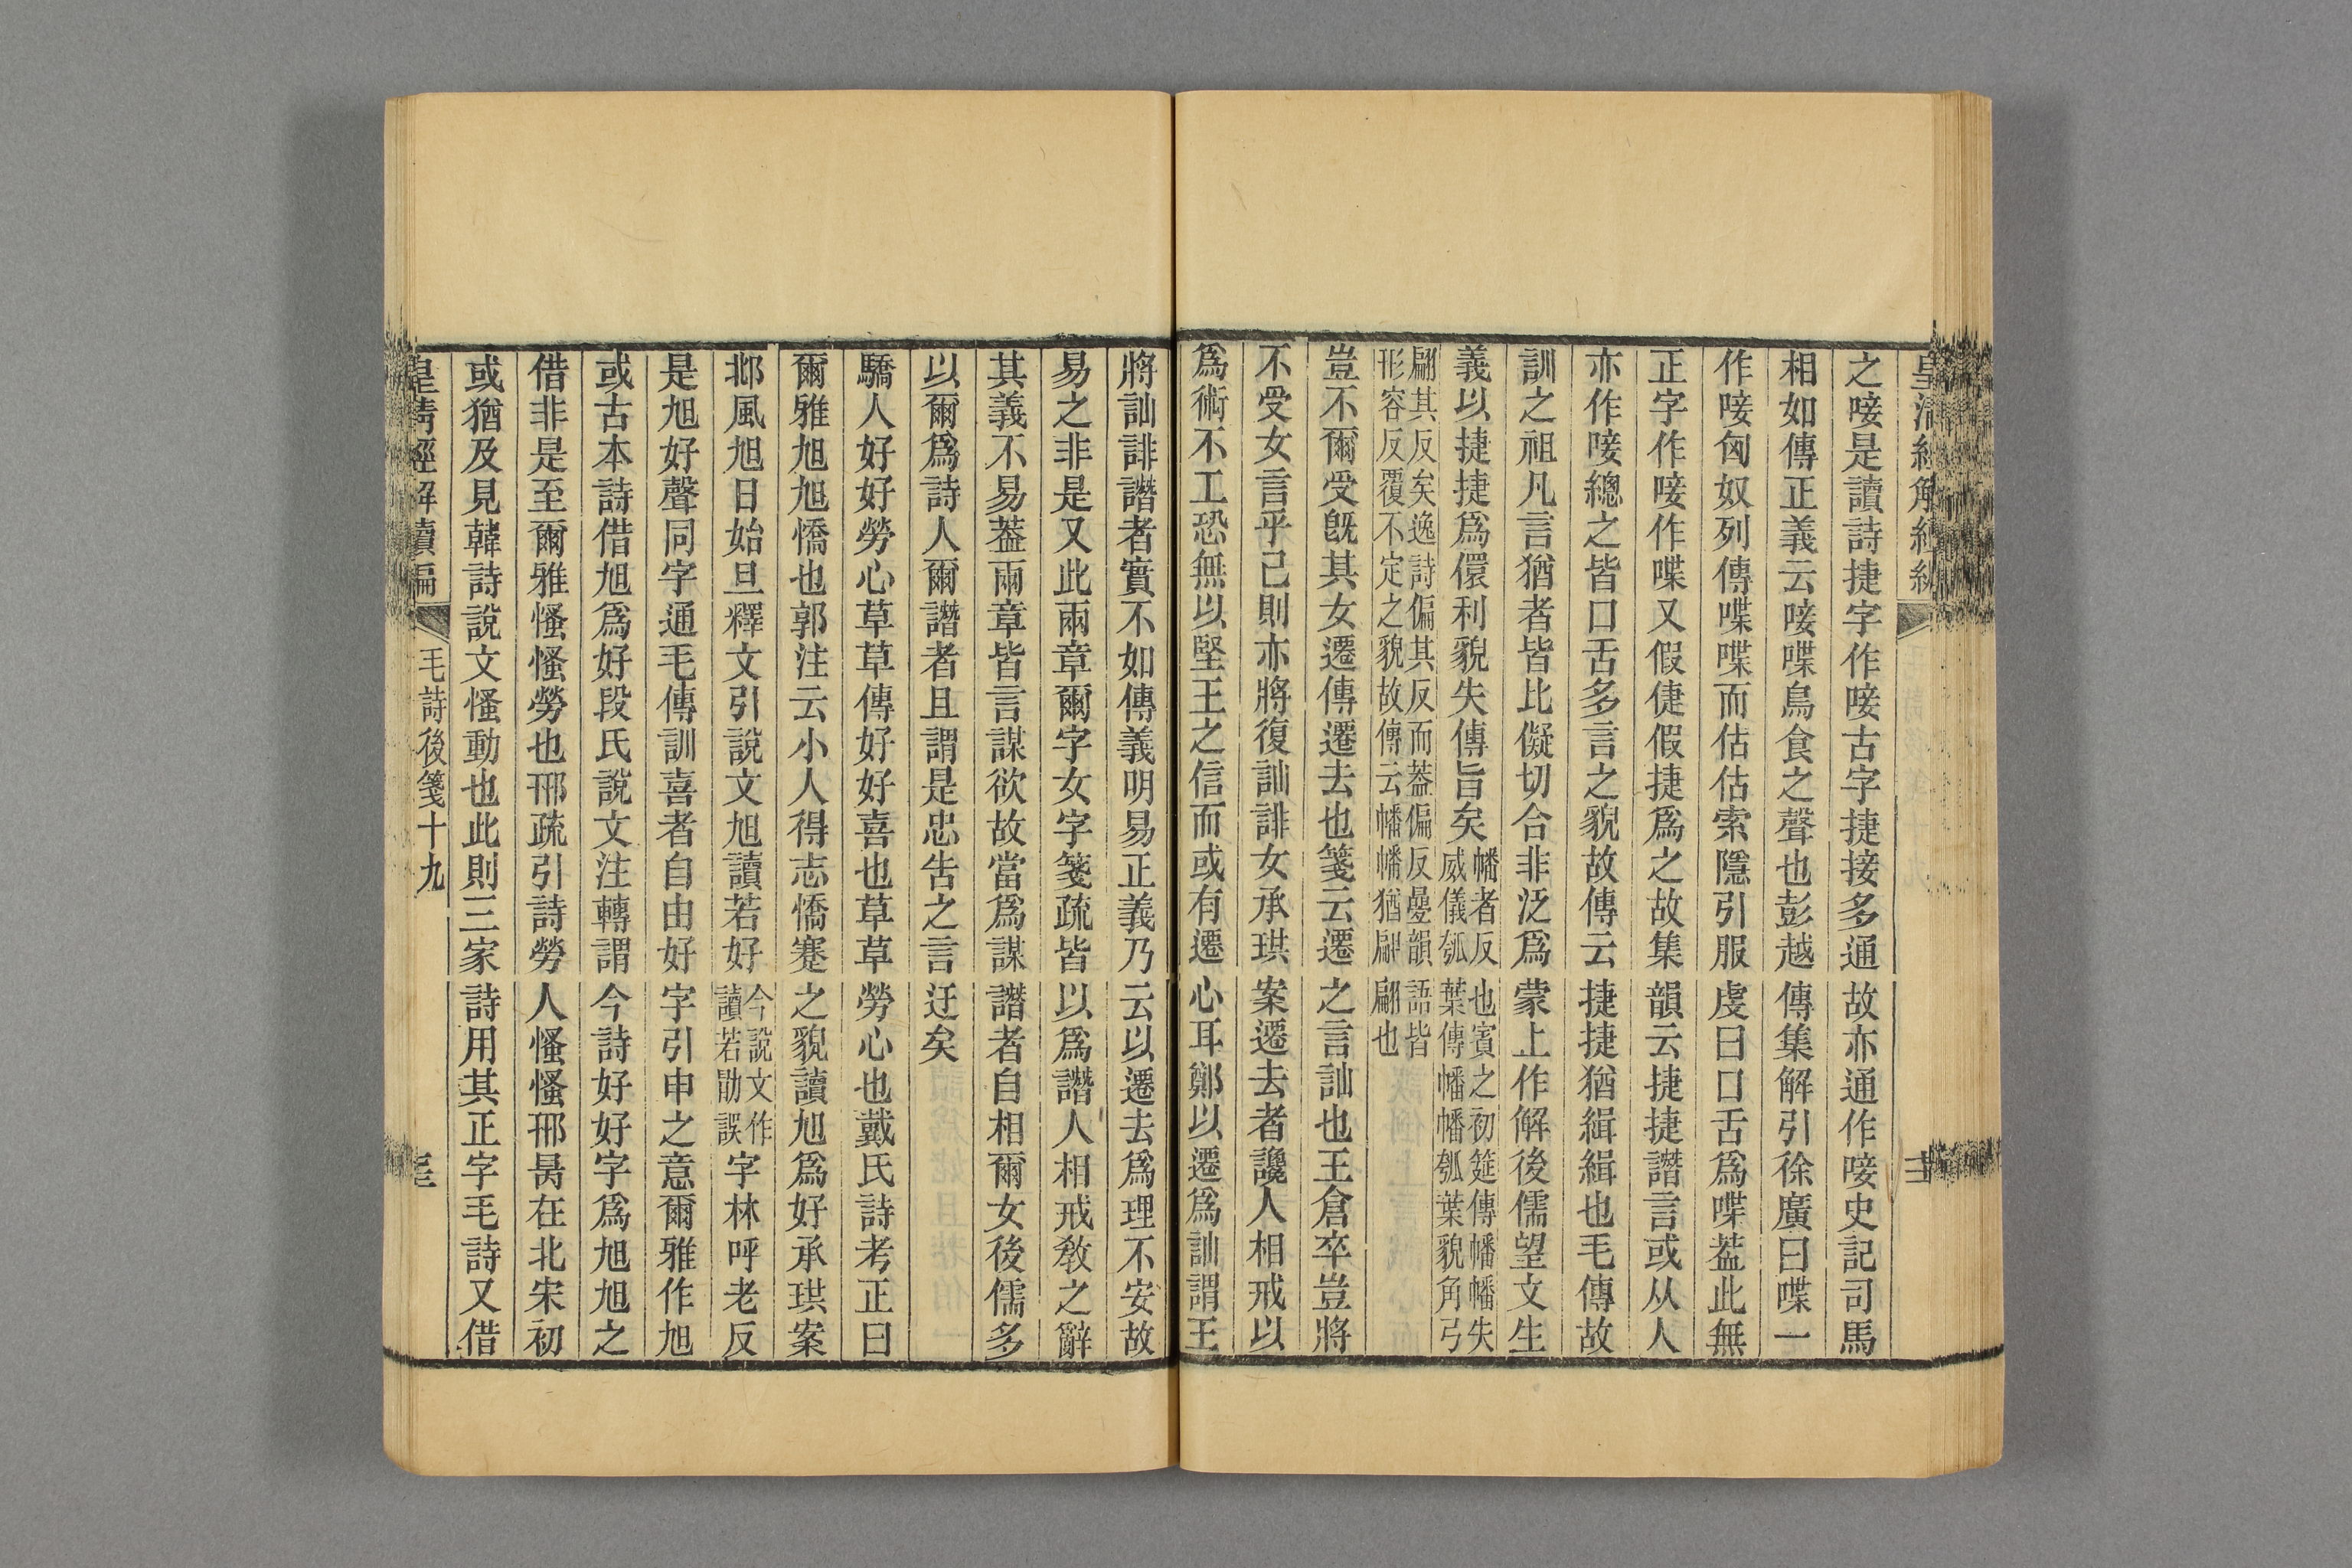 皇清經解續編
之唼是讀詩捷字作唼古字捷接多通故亦通作唼史記司馬
相如傳正義云唼喋鳥食之聲也彭越傳集解引徐廣曰喋一
作唼匈奴列傳喋喋而佔佔索隱引服虔曰口舌爲喋葢此無
正字作唼作喋又假倢假捷爲之故集韻云捷捷譖言或从人
亦作唼總之皆口舌多言之貌故傳云捷捷猶緝緝也毛傳故
訓之祖凡言猶者皆比儗切合非泛爲蒙上作解後儒望文生
義以捷捷爲儇利貌失傳旨矣幡者反也賓之初筵傳幡幡失
威儀瓠葉傳幡幡瓠葉貌角弓
翩其反矣逸詩偏其反而葢偏反曡韻語皆
形容反覆不定之貌故傳云幡幡猶翩翩也
豈不爾受旣其女遷傳遷去也箋云遷之言訕也王倉卒豈將
不受女言乎己則亦將復訕誹女承珙案遷去者讒人相戒以
爲術不工恐無以堅王之信而或有遷心耳鄭以遷爲訕謂王
將訕誹譖者實不如傳義明易正義乃云以遷去爲理不安故
易之非是又此兩章爾字女字箋疏皆以爲譖人相戒敎之辭
其義不易葢兩章皆言謀欲故當爲謀譖者自相爾女後儒多
以爾爲詩人爾譖者且謂是忠告之言迂矣
驕人好好勞心草草傳好好喜也草草勞心也戴氏詩考正曰
爾雅旭旭憍也郭注云小人得志憍蹇之貌讀旭爲好承珙案
邶風旭日始旦釋文引說文旭讀若好今說文作
讀若勖誤字林呼老反
是旭好聲同字通毛傳訓喜者自由好字引申之意爾雅作旭
或古本詩借旭爲好段氏說文注轉謂今詩好好字爲旭旭之
借非是至爾雅慅慅勞也邢疏引詩勞人慅慅邢昺在北宋初
或猶及見韓詩說文慅動也此則三家詩用其正字毛詩又借
皇清經解續編
毛詩後箋十九